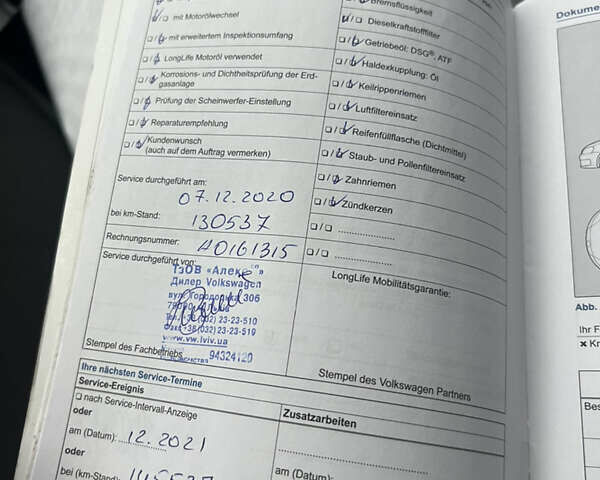 Bremsflüssigkeit
Dokume
mit Motorölwechsel
Dieselkraftstofffilter
mit erweitertem Inspektionsumfang
Getriebeöl: DSG®, ATF
LongLife Motoröl verwendet
Haldexkupplung: Öl
Korrosions- und Dichtheitsprüfung der Erd-
gasanlage
Keilrippenriemen
Prüfung der Scheinwerfer-Einstellung
Luftfiltereinsatz
Reparaturempfehlung
Reifenfüllflasche (Dichtmittel)
Kundenwunsch
(auch auf dem Auftrag vermerken)
Staub- und Pollenfiltereinsatz
Zahnriemen
Service durchgeführt am:
07.12.2020
Zündkerzen
bei km-Stand:
130537
Rechnungsnummer:
40161315
Service durchgeführt von:
ТзОВ «Алекс»
Дилер Volkswagen
306
(032) 23-23-510
(032) 23-23-519
www.vw.lviv.ua
94324120
LongLife Mobilitätsgarantie:
Abb.
Ihr F
Stempel des Fachbetriebs
Stempel des Volkswagen Partners
Ihre nächsten Service-Termine
Service-Ereignis
nach Service-Intervall-Anzeige
Zusatzarbeiten
oder
am (Datum): 12.2021
oder
bei (km-Stand):
am (Datum):